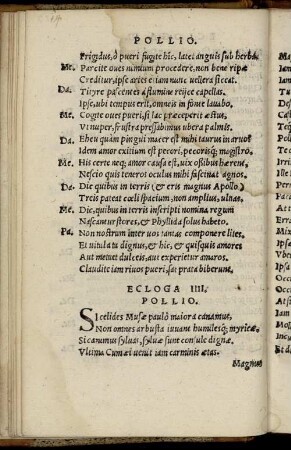 POLLIO.
Frigidus, ô pueri fugite hic, latet anguis sub herba.
Me. Parcite oues nimium procedere, non bene ripæ
Creditur, ipse aries etiam nunc uellera siccat.
Da. Tityre pascentes à flumine reijce capellas.
Ipse, ubi tempus erit, omneis in fonte lauabo.
Me. Cogite oues pueri, si lac præceperit æstus,
Vt nuper, frustra pressabimus ubera palmis.
Da. Eheu quàm pingui macer est mihi taurus in aruo!
Idem amor exitium est pecori, pecorisq; magistro.
Me. His certe neq; amor causa est, uix ossibus hærent,
Nescio quis teneros oculus mihi fascinat agnos.
Da. Dic quibus in terris (& eris magnus Apollo)
Treis pateat cœli spacium, non amplius, ulnas.
Me. Dic, quibus in terris inscripti nomina regum
Nascantur flores, & Phyllida solus habeto.
Pa. Non nostrum inter uos tantas componere lites,
Et uitula tu dignus, & hic, & quisquis amores
Aut metuet dulceis, aut experietur amaros.
Claudite iam riuos pueri, sat prata biberunt.
ECLOGA IIII.
POLLIO.
SIcelides Musæ paulò maiora canamus,
Non omnes arbusta iuuant humilesq; myricæ,
Si canimus syluas, syluæ sunt consule dignæ.
Vltima Cumæi uenit iam carminis ætas.
Magnus